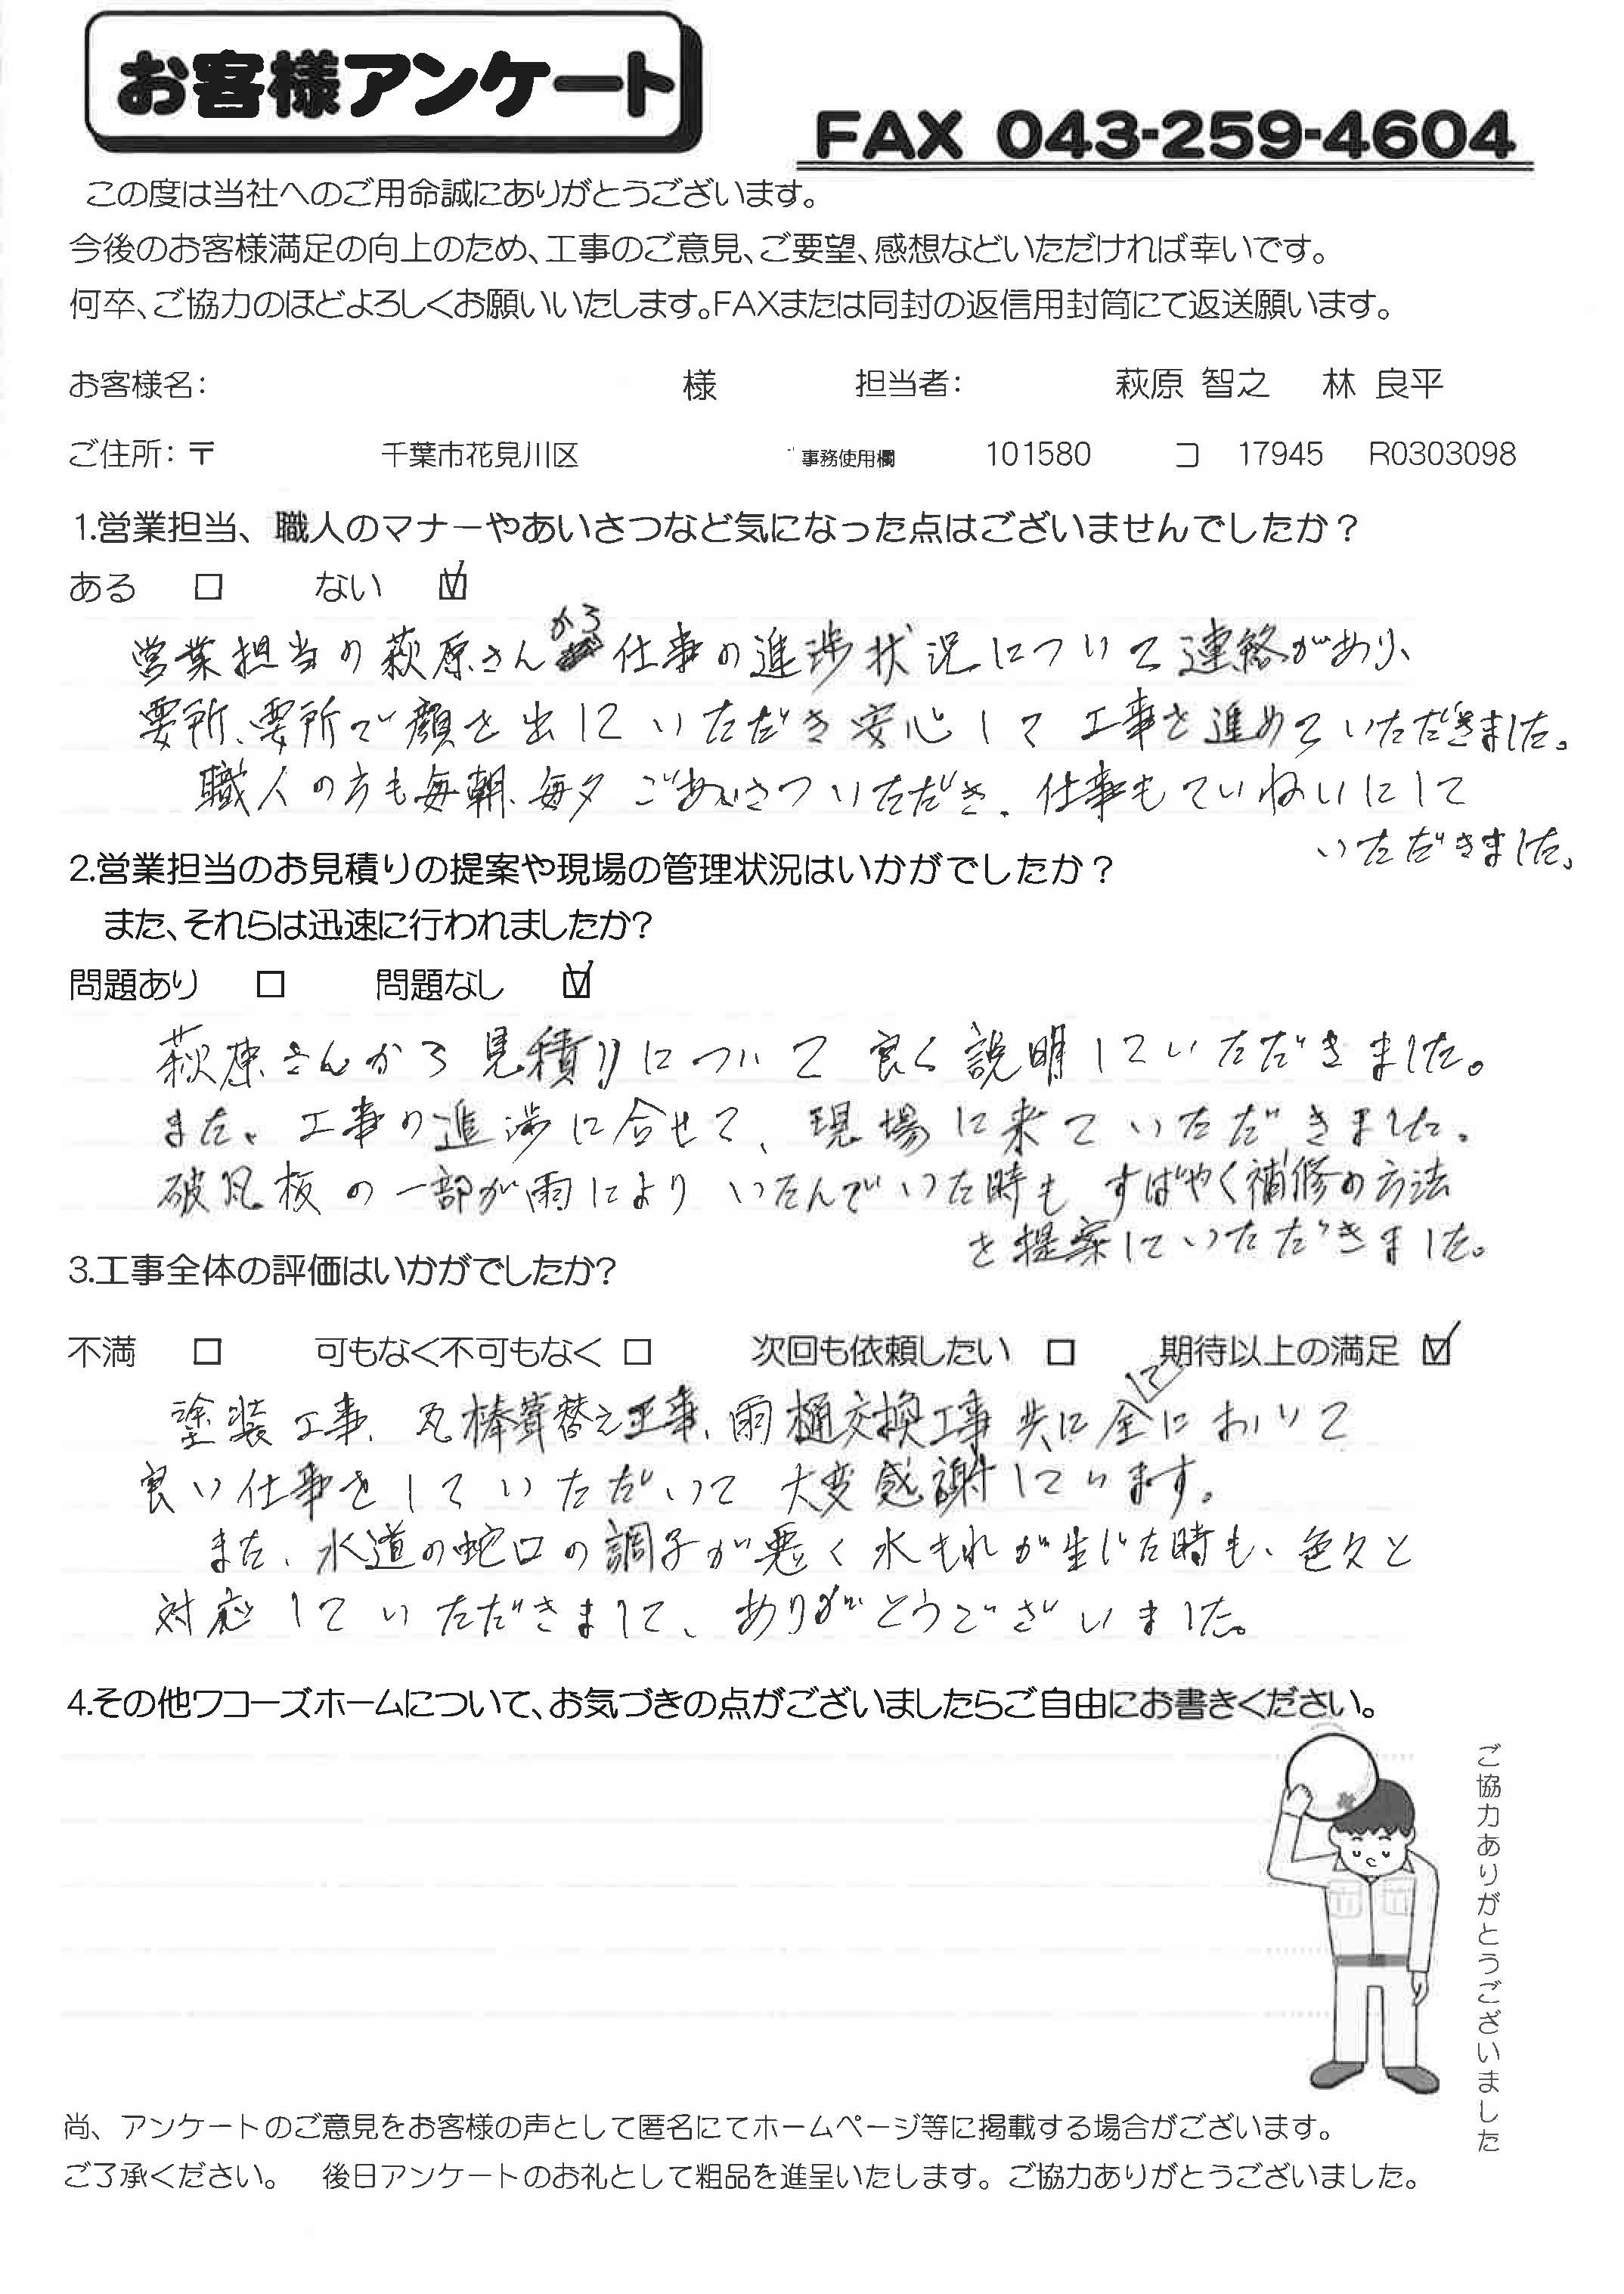 お客様アンケート
FAX 043-259-4604
この度は当社へのご用命誠にありがとうございます。
今後のお客様満足の向上のため、工事のご意見、ご要望、感想などいただければ幸いです。
何卒、ご協力のほどよろしくお願いいたします。FAXまたは同封の返信用封筒にて返送願います。
お客様名: 様 担当者: 萩原 智之 林 良平
ご住所: 〒 千葉市花見川区 事務使用欄 101580 コ 17945 R0303098
1.営業担当、職人のマナーやあいさつなど気になった点はございませんでしたか？
ある □ ない ☑
営業担当の萩原さんから仕事の進捗状況について連絡があり、
要所、要所で顔を出していただき安心して工事を進めていただきました。
職人の方も毎朝、毎夕ごあいさついただき、仕事もていねいにして
いただきました。
2.営業担当のお見積りの提案や現場の管理状況はいかがでしたか？
また、それらは迅速に行われましたか?
問題あり □ 問題なし ☑
萩原さんから見積りについて良く説明していただきました。
また、工事の進渉に合せて、現場に来ていただきました。
破風板の一部が雨によりいたんでいた時もすばやく補修の方法
を提案していただきました。
3.工事全体の評価はいかがでしたか?
不満 □ 可もなく不可もなく □ 次回も依頼したい □ 期待以上の満足 ☑
塗装工事、瓦棒葺替え工事、雨樋交換工事共に全てにおいて
良い仕事をしていただいて大変感謝しています。
また、水道の蛇口の調子が悪く水もれが生じた時も、色々と
対応していただきまして、ありがとうございました。
4.その他ワコーズホームについて、お気づきの点がございましたらご自由にお書きください。
ご協力ありがとうございました
尚、アンケートのご意見をお客様の声として匿名にてホームページ等に掲載する場合がございます。
ご了承ください。 後日アンケートのお礼として粗品を進呈いたします。ご協力ありがとうございました。